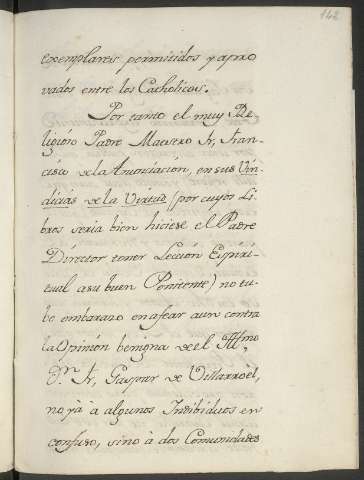 142
exemplares permitidos y apro
vados entre los Catholicos.
Por tanto el muy Re
ligioso Padre Maestro Fr, Fran
cisco de la Anunciación, en sus Vin
dicias de la Virtud (por cuyos Li
bros seria bien hiciese el Padre
Director tener Lección Espiri
tual a su buen Penitente) no tu
bo embarazo en afear aun contra
la Opinión benigna de el Illmo,
D.n Fr, Gaspar de Villarroèl,
no yà à algunos Indibiduos en
confuso, sino à dos Comunidades